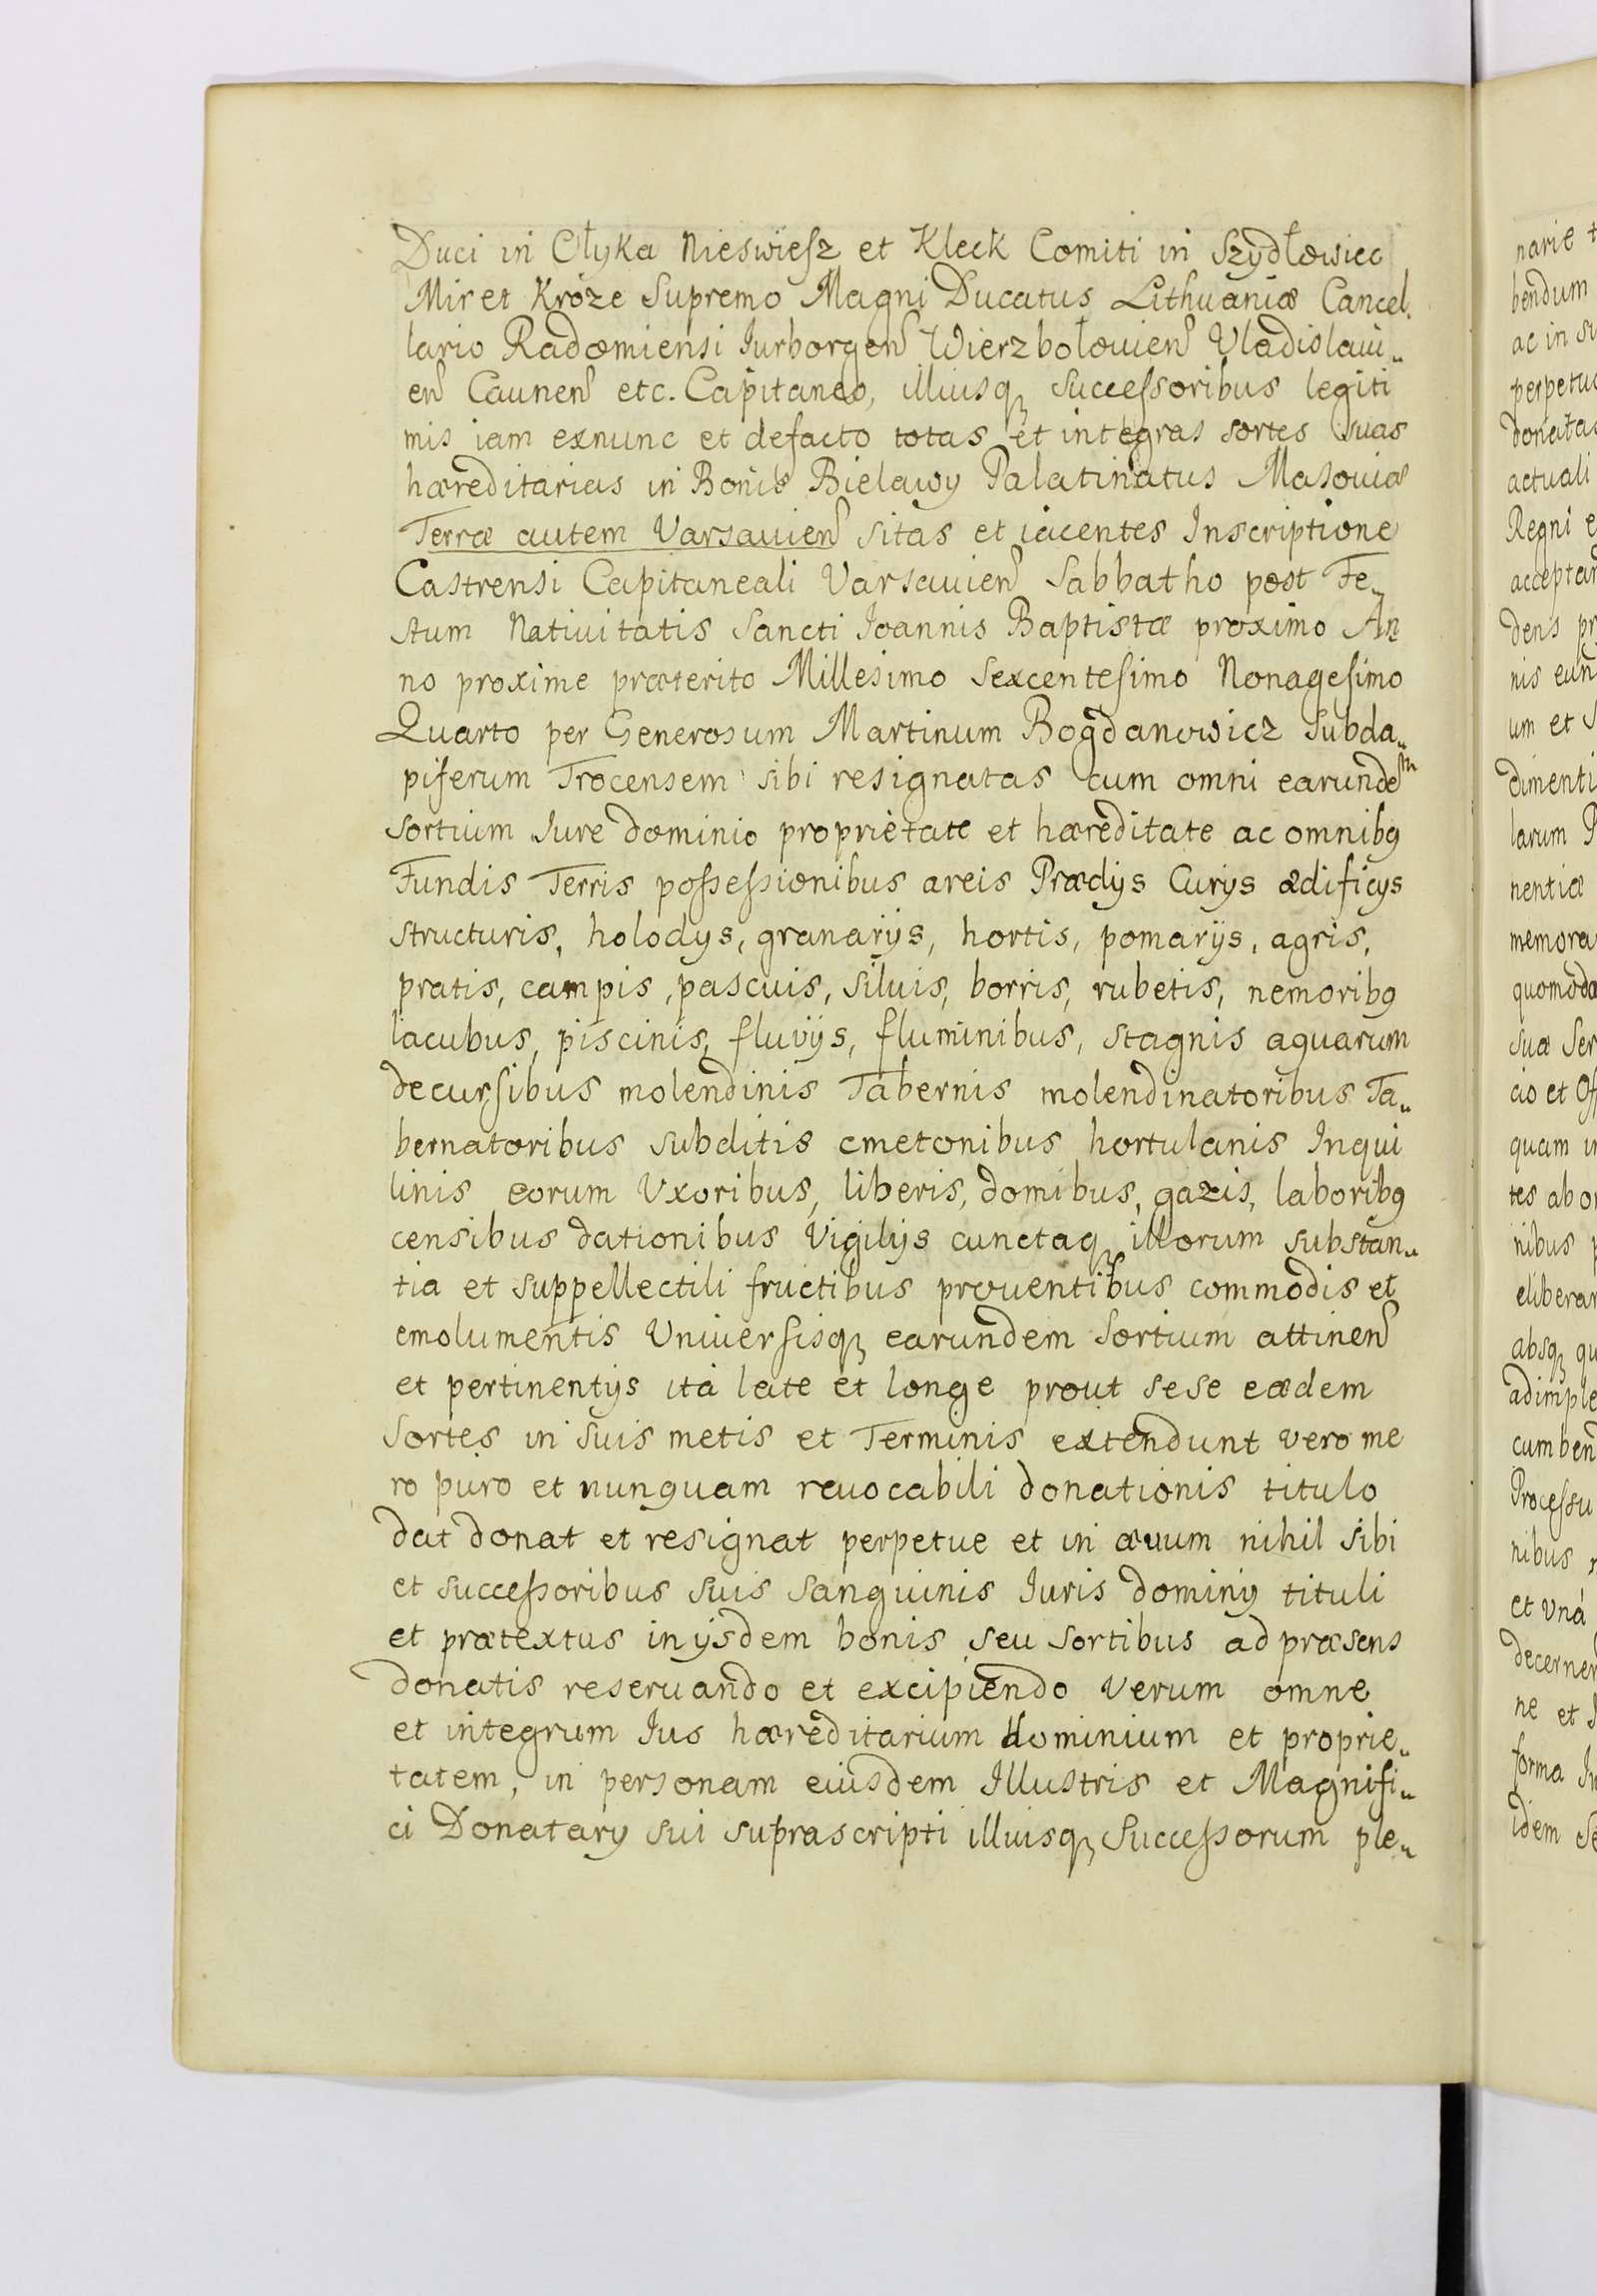 Duci in Ołyka Nieswiesz et Kleck Comiti in Szydłowiec
Mir et Kroze Supremo Magni Ducatus Lithuaniæ Cancel,
lario Radomiensi Iurborgen Wierzbołouien Vladislaui„
en Caunen etc. Capitaneo, illiusq successoribus legiti
mis iam exnunc et defacto totas et integras sortes suas
hæreditarias in Bonis Bielawy Palatinatus Masouiæ
Terræ autem Varsauien sitas et iacentes Inscriptione
Castrensi Capitaneali Varsauien Sabbatho post Fe„
stum Natiuitatis Sancti Joannis Baptistæ proximo An
no proxime præterito Millesimo Sexcentesimo Nonagesimo
Quarto per Generosum Martinum Bogdanowicz Subda„
piferum Trocensem sibi resignatas cum omni earundem
sortium Iure dominio proprietate et hæreditate ac omnibq
Fundis Terris possessionibus areis Prædijs Curijs ædificijs
structuris, holodijs, granarijs, hortis, pomarijs, agris,
pratis, campis, pascuis, siluis, borris, rubetis, nemoribq
lacubus, piscinis, fluvijs, fluminibus, stagnis aquarum
decursibus molendinis Tabernis molendinatoribus Ta„
bernatoribus subditis cmetonibus hortulanis Inqui
linis eorum Vxoribus, liberis, domibus, gazis, laboribq
censibus dationibus Vigilijs cunctaq illorum substan„
tia et suppellectili fructibus prouentibus commodis et
emolumentis Vniuersisq earundem sortium attinen
et pertinentijs ità late et longe prout sese eædem
Sortes in suis metis et Terminis extendunt vero me
ro puro et nunquam reuocabili donationis titulo
dat donat et resignat perpetue et in æuum nihil sibi
et successoribus suis sanguinis Iuris dominij tituli
et prætextus in ijsdem bonis seu sortibus ad præsens
donatis reseruando et excipiendo Verum omne
et integrum Ius hæreditarium dominium et proprie„
tatem, in personam eiusdem Illustris et Magnifi„
ci Donatarij sui suprascripti illiusq Successorum ple„
narie
bendum
ac in
perpetuo
donatas
actuali
Regni
dens
um et
dimenti
larum
nentiæ
memora
quomodo
suæ Ser
cio et Off
quam in
tes ab
nibus
elibera
absq qu
adimple
cumben
Processu
nibus
et Vná
decerne
ne et
forma
idem